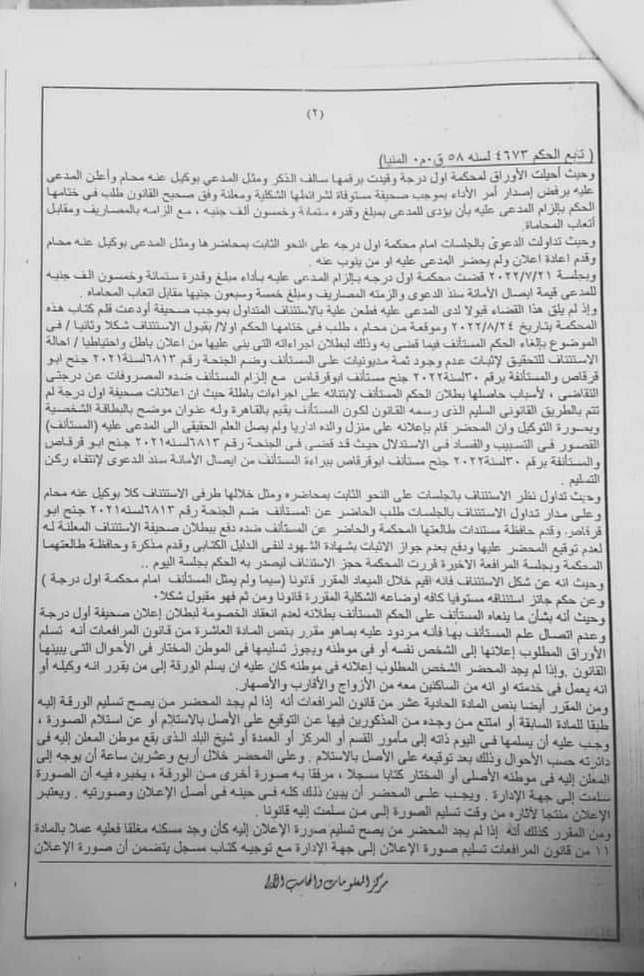 (٢)
( تابع الحكم ٤٦٧٣ لسنه ٥٨ ق٠م٠ المنيا)
وحيث أحيلت الأوراق لمحكمة اول درجة وقيدت برقمها سالف الذكر ومثل المدعي بوكيل عنه محام وأعلن المدعى
عليه برفض إصدار أمر الأداء بموجب صحيفة مستوفاة لشرائطها الشكلية ومعلنة وفق صحيح القانون طلب فى ختامها
الحكم بإلزام المدعى عليه بأن يؤدى للمدعى بمبلغ وقدره ستمانة وخمسون ألف جنيه ، مع الزامه بالمصاريف ومقابل
أتعاب المحاماة.
وحيث تداولت الدعوى بالجلسات امام محكمة اول درجه على النحو الثابت بمحاضرها ومثل المدعى بوكيل عنه محام
وقدم اعادة اعلان ولم يحضر المدعى عليه او من ينوب عنه .
وبجلسة ٢٠٢٢/٧/٢١ قضت محكمة اول درجه بإلزام المدعى عليه بأداء مبلغ وقدرة ستمانة وخمسون الف جنيه
للمدعى قيمة ايصال الأمانة سند الدعوى والزمته المصاريف ومبلغ خمسة وسبعون جنيها مقابل اتعاب المحاماه .
وإذ لم يلق هذا القضاء قبولا لدى المدعى عليه فطعن علية بالاستئناف المتداول بموجب صحيفة أودعت قلم كتاب هذه
المحكمة بتاريخ ٢٠٢٢/٨/٢٤ وموقعة من محام ، طلب فى ختامها الحكم اولا/ بقبول الاستئناف شكلا وثانيا / فى
الموضوع بإلغاء الحكم المستأنف فيما قضى به وذلك لبطلان اجراءاته التى بنى عليها من اعلان باطل واحتياطيا / احالة
الاستئناف للتحقيق لإثبات عدم وجود ثمة مديونيات على المستأنف وضم الجنحة رقم ٦٨١٣لسنة٢٠٢١ جنح ابو
قرقاص والمستأنفة برقم ٣٠لسنة٢٠٢٢ جنح مستأنف ابوقرقاص مع إلزام المستأنف ضده المصروفات عن درجتى
التقاضى ، لأسباب حاصلها بطلان الحكم المستأنف لابتنائه على اجراءات باطلة حيث إن اعلانات صحيفة اول درجة لم
تتم بالطريق القانونى السليم الذى رسمه القانون لكون المستأنف يقيم بالقاهرة وله عنوان موضح بالبطاقة الشخصية
وبصورة التوكيل وان المحضر قام بإعلانه على منزل والده اداريا ولم يصل العلم الحقيقى الى المدعى عليه (المستأنف)
القصور فى التسبيب والفساد فى الاستدلال حيث قد قضى فى الجنحة رقم ٦٨١٣لسنة٢٠٢١ جنح ابو قرقاص
والمستأنفة برقم ٣٠لسنة٢٠٢٢ جنح مستأنف ابوقرقاص ببراءة المستأنف من ايصال الأمانة سند الدعوى لإنتفاء ركن
التسليم .
وحيث تداول نظر الاستئناف بالجلسات على النحو الثابت بمحاضره ومثل خلالها طرفى الاستئناف كلا بوكيل عنه محام
وعلى مدار تداول الاستئناف بالجلسات طلب الحاضر عن المستأنف ضم الجنحة رقم ٦٨١٣لسنة٢٠٢١ جنح ابو
قرقاص. وقدم حافظة مستندات طالعتها المحكمة والحاضر عن المستأنف ضده دفع ببطلان صحيفة الاستئناف المعلنة له
لعدم توقيع المحضر عليها ودفع بعدم جواز الاثبات بشهادة الشهود لنفى الدليل الكتابى وقدم مذكرة وحافظة طالعتهما
المحكمة وبجلسة المرافعة الاخيرة قررت المحكمة حجز الاستئناف ليصدر به الحكم بجلسة اليوم ..
وحيث انه عن شكل الاستئناف فانه اقيم خلال الميعاد المقرر قانونا (سيما ولم يمثل المستأنف امام محكمة اول درجة )
وعن حكم جائز استئنافه مستوفيا كافه اوضاعه الشكلية المقررة قانونا ومن ثم فهو مقبول شكلا٠
وحيث أنه بشأن ما ينعاه المستأنف على الحكم المستأنف بطلانه لعدم انعقاد الخصومة لبطلان إعلان صحيفة أول درجة
وعدم اتصال علم المستأنف بها فأنه مردود عليه بماهو مقرر بنص المادة العاشرة من قانون المرافعات أنه تسلم
الأوراق المطلوب إعلانها إلى الشخص نفسه أو فى موطنه ويجوز تسليمها فى الموطن المختار فى الأحوال التى يبينها
القانون .وإذا لم يجد المحضر الشخص المطلوب إعلانه فى موطنه كان عليه ان يسلم الورقة إلى من يقرر انه وكيله أو
انه يعمل فى خدمته او انه من الساكنين معه من الأزواج والأقارب والأصهار.
ومن المقرر أيضا بنص المادة الحادية عشر من قانون المرافعات أنه إذا لم يجد المحضر من يصح تسليم الورقة إليه
طبقا للمادة السابقة أو امتنع من وجده من المذكورين فيها عن التوقيع على الأصل بالاستلام أو عن استلام الصورة ،
وجب عليه أن يسلمها فى اليوم ذاته إلى مأمور القسم أو المركز أو العمدة أو شيخ البلد الذى يقع موطن المعلن إليه فى
دائرته حسب الأحوال وذلك بعد توقيعه على الأصل بالاستلام . وعلى المحضر خلال أربع وعشرين ساعة أن يوجه إلى
المعلن إليه فى موطنه الأصلى أو المختار كتابا مسجلا ، مرفقا به صورة أخرى من الورقة ، يخبره فيه أن الصورة
سلمت إلى جهة الإدارة . ويجب على المحضر أن يبين ذلك كله فى حينه فى أصل الإعلان وصورتيه . ويعتبر
الإعلان منتجا لآثاره من وقت تسليم الصورة إلى من سلمت إليه قانونا .
ومن المقرر كذلك أنه إذا لم يجد المحضر من يصح تسليم صورة الإعلان إليه كأن وجد مسكنه مغلقا فعليه عملا بالمادة
١١ من قانون المرافعات تسليم صورة الإعلان إلى جهة الإدارة مع توجيه كتاب مسجل يتضمن أن صورة الإعلان
مركز المعلومات والحاسب الآلى